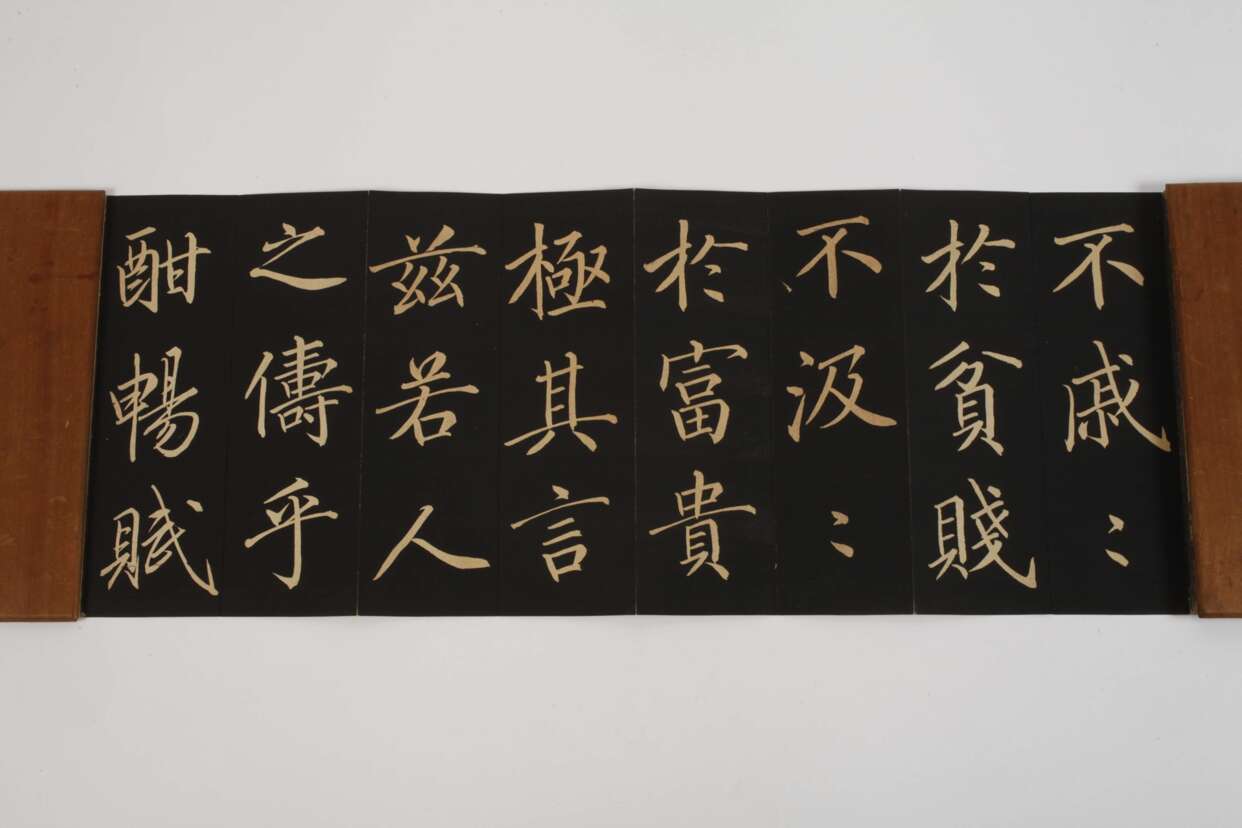 不戚〻
於貧賤
不汲〻
於富貴
極其言
茲若人
之儔乎
酣暢賦